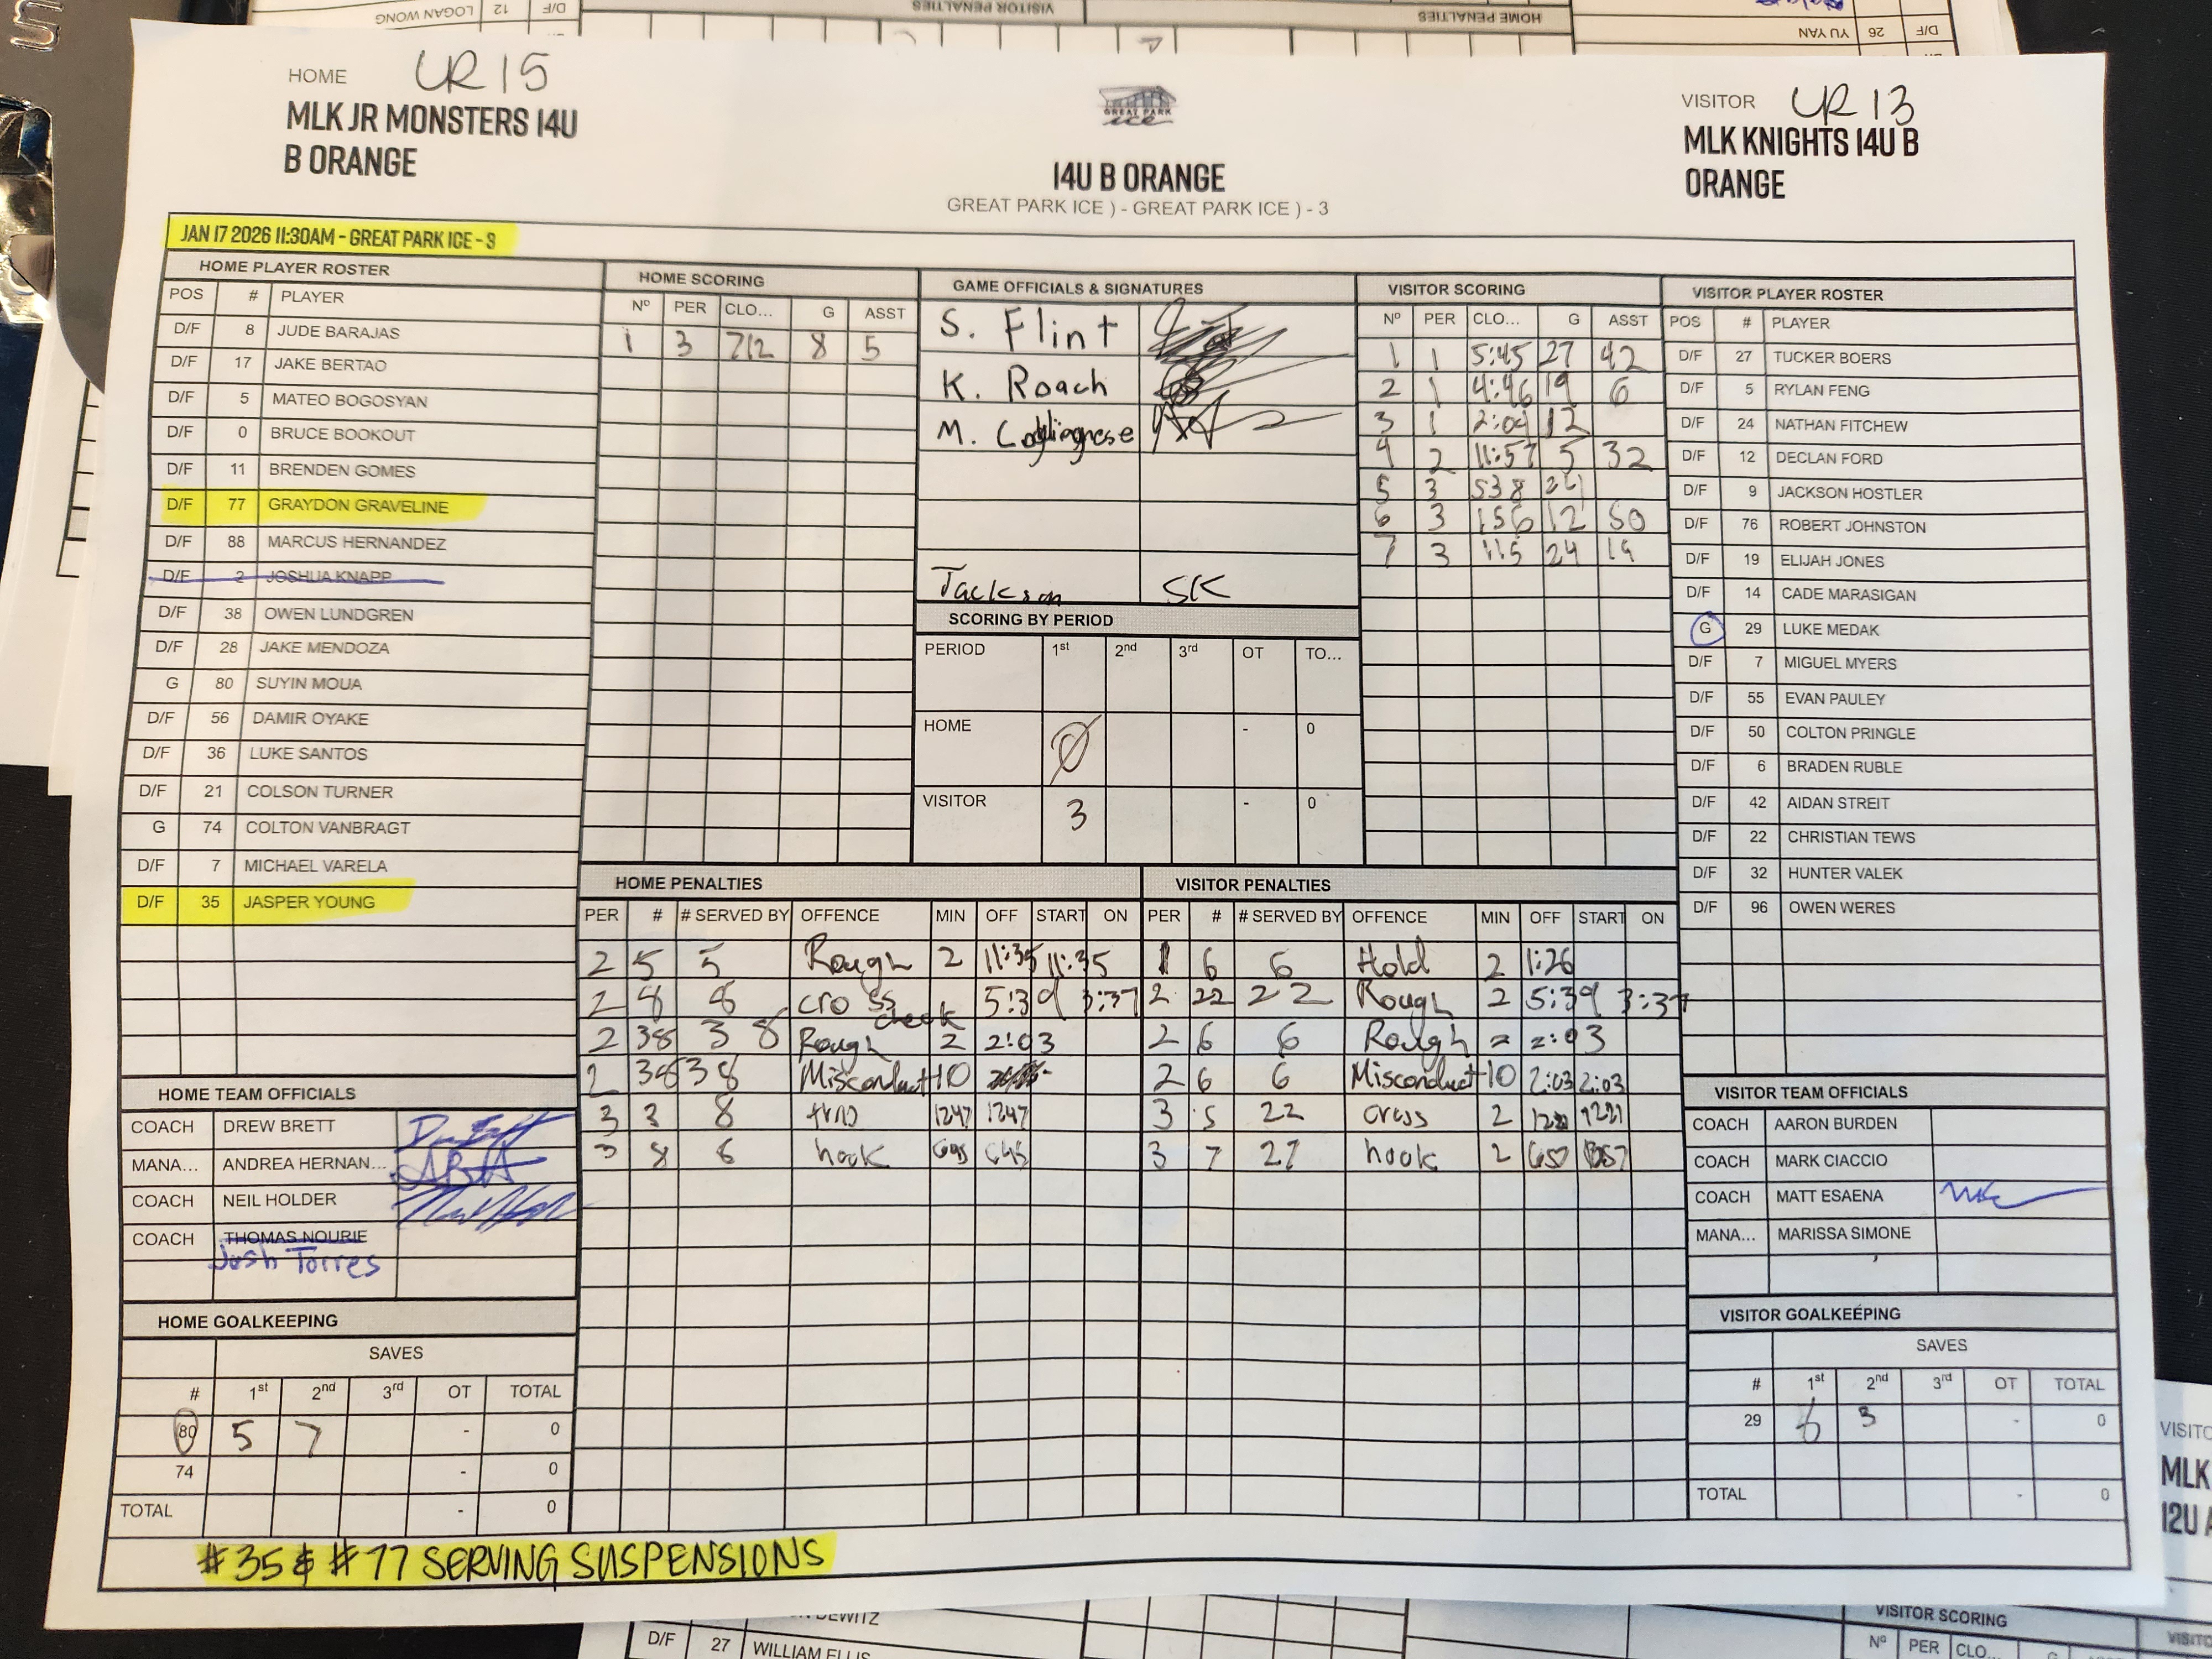 LOGAN WONG 12 D/F
VISITOR PENALTIES
HOME PENALTIES
YU YAN 26 D/F
HOME UR 15
MLK JR MONSTERS 14U
B ORANGE
GREAT PARK
ice
14U B ORANGE
GREAT PARK ICE ) - GREAT PARK ICE ) - 3
VISITOR UR 13
MLK KNIGHTS 14U B
ORANGE
JAN 17 2026 11:30AM - GREAT PARK ICE - 3
HOME PLAYER ROSTER
POS # PLAYER
D/F 8 JUDE BARAJAS
D/F 17 JAKE BERTAO
D/F 5 MATEO BOGOSYAN
D/F 0 BRUCE BOOKOUT
D/F 11 BRENDEN GOMES
D/F 77 GRAYDON GRAVELINE
D/F 88 MARCUS HERNANDEZ
D/F 2 JOSHUA KNAPP
D/F 38 OWEN LUNDGREN
D/F 28 JAKE MENDOZA
G 80 SUYIN MOUA
D/F 56 DAMIR OYAKE
D/F 36 LUKE SANTOS
D/F 21 COLSON TURNER
G 74 COLTON VANBRAGT
D/F 7 MICHAEL VARELA
D/F 35 JASPER YOUNG
HOME SCORING
Nº PER CLO... G ASST
1 3 712 8 5
GAME OFFICIALS & SIGNATURES
S. Flint
K. Roach
M.
Jackson SK
SCORING BY PERIOD
PERIOD 1st 2nd 3rd OT TO...
HOME 0 - 0
VISITOR 3 - 0
VISITOR SCORING
Nº PER CLO... G ASST
1 1 5:45 27 42
2 1 4:46 19 6
3 1 2:09 12
4 2 11:57 5 32
5 3 538
6 3 156 12 50
7 3 115 24 19
VISITOR PLAYER ROSTER
POS # PLAYER
D/F 27 TUCKER BOERS
D/F 5 RYLAN FENG
D/F 24 NATHAN FITCHEW
D/F 12 DECLAN FORD
D/F 9 JACKSON HOSTLER
D/F 76 ROBERT JOHNSTON
D/F 19 ELIJAH JONES
D/F 14 CADE MARASIGAN
G 29 LUKE MEDAK
D/F 7 MIGUEL MYERS
D/F 55 EVAN PAULEY
D/F 50 COLTON PRINGLE
D/F 6 BRADEN RUBLE
D/F 42 AIDAN STREIT
D/F 22 CHRISTIAN TEWS
D/F 32 HUNTER VALEK
D/F 96 OWEN WERES
HOME PENALTIES
PER # # SERVED BY OFFENCE MIN OFF START ON
2 5 5 Rough 2 11:35 11:35
2 8 8 cross check 5:39 3:37
2 38 38 Rough 2 2:03
2 38 38 Misconduct 10
3 8 1247 1247
3 8 hook 645 645
VISITOR PENALTIES
PER # # SERVED BY OFFENCE MIN OFF START ON
1 6 6 Hold 2 1:26
2 22 22 Rough 2 5:39 3:37
2 6 6 Rough 2 2:03
2 6 6 Misconduct 10 2:03 2:03
3 5 22 cross 2 1221
3 7 27 hook 2 657
HOME TEAM OFFICIALS
COACH DREW BRETT
MANA... ANDREA HERNAN...
COACH NEIL HOLDER
COACH THOMAS NOURIE
Josh Torres
VISITOR TEAM OFFICIALS
COACH AARON BURDEN
COACH MARK CIACCIO
COACH MATT ESAENA
MANA... MARISSA SIMONE
HOME GOALKEEPING
SAVES
# 1st 2nd 3rd OT TOTAL
80 5 7 - 0
74 - 0
TOTAL - 0
VISITOR GOALKEEPING
SAVES
# 1st 2nd 3rd OT TOTAL
29 6 3 - 0
TOTAL - 0
#35 & #77 SERVING SUSPENSIONS
DEWITZ
D/F 27 WILLIAM ELLIS
VISITOR SCORING
Nº PER CLO... G
MLK
12U A